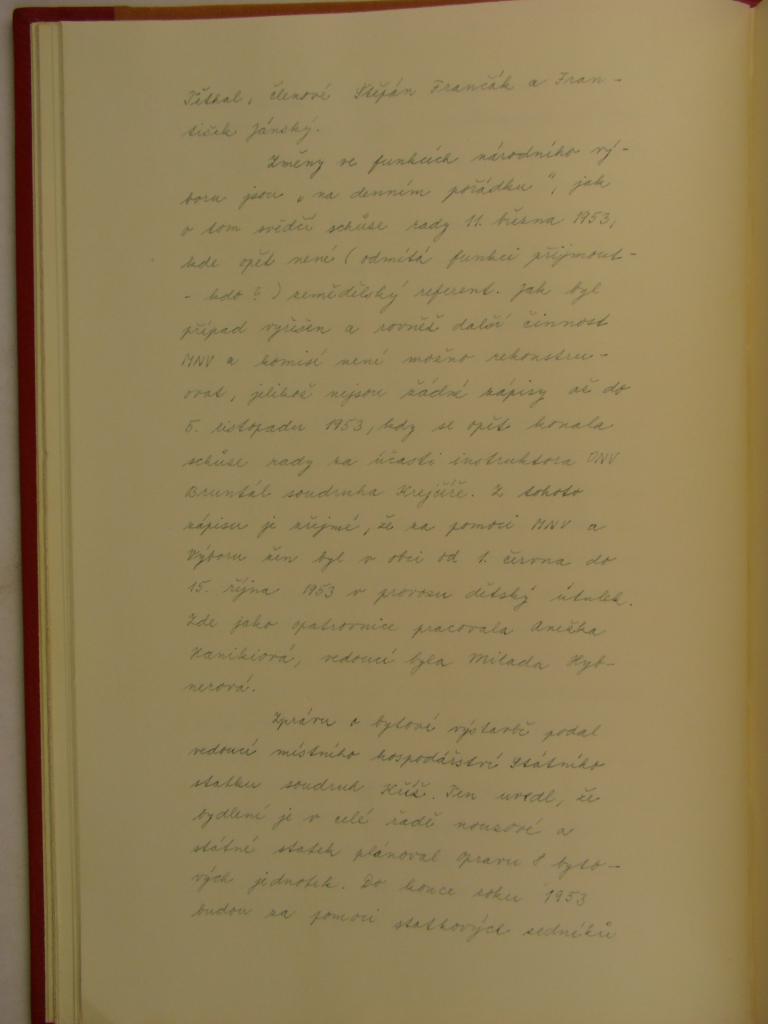 Pěthal, členové Štěpán Frančák a Fran-
tišek Jánský.
Změny ve funkcích národního vý-
boru jsou „na denním pořádku", jak
o tom svědčí schůze rady 11. března 1953,
kde opět není (odmítá funkci přijmout-
- kdo?) zemědělský referent. Jak byl
případ vyřešen a rovněž další činnost
MNV a komisí není možno rekonstru-
ovat, jelikož nejsou žádné zápisy až do
5. listopadu 1953, kdy se opět konala
schůze rady za účasti instruktora ONV
Bruntál soudruha Krejčíře. Z tohoto
zápisu je zřejmé, že za pomoci MNV a
Výboru žen byl v obci od 1. června do
15. října 1953 v provozu dětský útulek.
Zde jako opatrovnice pracovala Anežka
Hanikiová, vedoucí byla Milada Hyb-
nerová.
Zprávu o bytové výstavbě podal
vedoucí místního hospodářství Státního
statku soudruh Kříž. Ten uvedl, že
bydlení je v celé řadě nouzové a
státní statek plánoval opravu 8 byto-
vých jednotek. Do konce roku 1953
budou za pomoci statkových zedníků